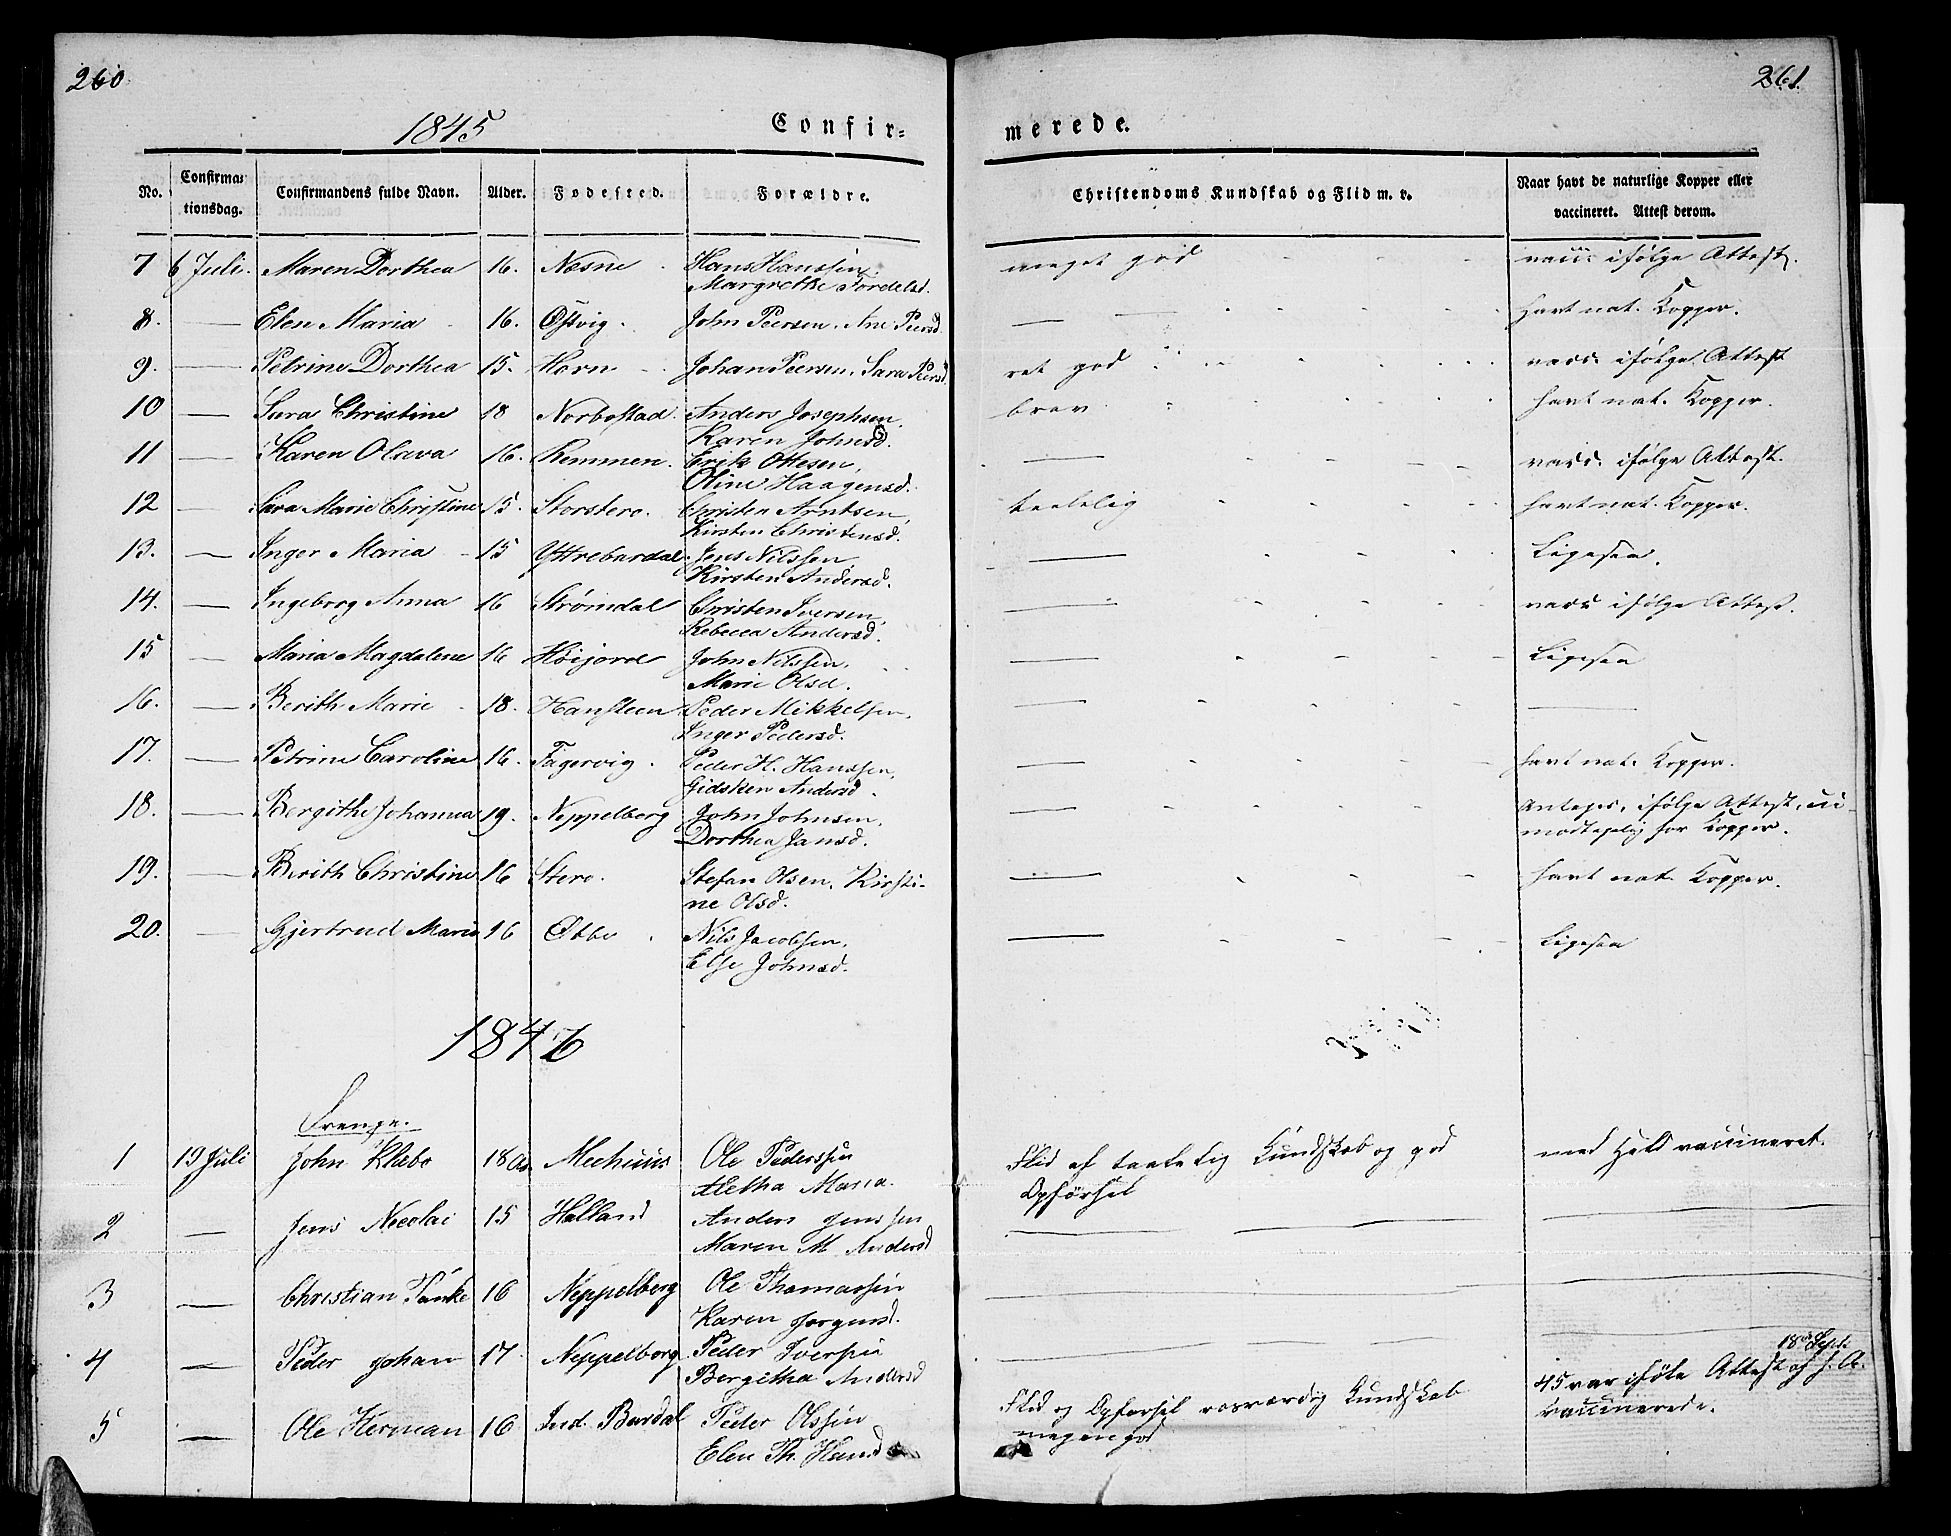 260
261
1845
Confir=
merede.
No.
Confirma=
tionsdag.
Confirmandens fulde Navn.
Alder.
Fødested.
Forældre.
Christendoms Kundskab og Flid m. v.
Naar havt de naturlige Kopper eller
vaccineret. Attest derom.
7 6 Juli. Maren Dorthea 16. Næsne Hans Hanssen, meget god vacc. ifølge Attest.
Margrethe Tordelsd.
8. — Elen Maria 16. Østvig. John Peersen. Ane Peersd. — — havt nat. Kopper.
9. — Petrine Dorthea 15. Horn Johan Peersen. Sara Peersd. ret god vacc. ifølge Attest
10 — Sara Christine 18 Norbostad. Anders Josephsen, brav havt nat. Kopper.
Karen Johnsd.
11 — Karen Olava 16. Remmen. Erik Ottesen, — vacc. ifølge Attest.
Oline Haagensd.
12 — Sara Marie Christine 15. Storstero. Christen Arntsen, taalelig havt nat. Kopper.
Kirsten Christensd.
13. — Inger Maria 15 Yttrebardal. Jens Nilssen — Ligesaa.
Kirsten Andersd.
14. — Ingeborg Anna 16 Strømdal Christen Iversen, — vacc ifølge Attest.
Rebecca Andersd.
15 — Maria Magdalene 16 Høijord John Nilssen, — Ligesaa
Marie Olsd.
16. — Berith Marie 18. Hansteen Peder Mikkelsen, — —
Inger Pedersd.
17. — Petrine Caroline 16. Fagervig. Peder H. Hanssen, — havt nat. Kopper.
Gidsken Andersd.
18. — Bergithe Johanna 19. Neppelberg John Johnsen, — Antages, ifølge Attest, ui-
Dorthea Jansd. modtagelig for Kopper.
19. — Berith Christine 16 Stero. Stefan Olsen, Kirsti- — havt nat. Kopper.
ne Olsd.
20. — Gjertrud Marie 16 Nils Jacobsen, — Ligesaa
Else Johnsd.
1846
Drenge.
1 19 Juli John Klæbo 18 Ole Pederssen Flid af taalelig Kundskab og god med Held vaccineret.
Aletha Maria. Opførsel
2 — Jens Nicolai 15 Halland Anders Jenssen — — —
Maren M. Andersd
3 — Christian Tanke 16 Neppelberg Ole Thomassen — —
Karen Jørgensd.
4 — Peder Johan 17 Neppelberg. Peder Iversen — — 18de Septr
Bergitha Andersd 45 var iføle Attest af s. A.
vaccinerede.
5 — Ole Herman 16 Ind. Bardal Peder Olssen Flid og Opførsel rosværdig Kundskab
Elen Th. Hansd megen god